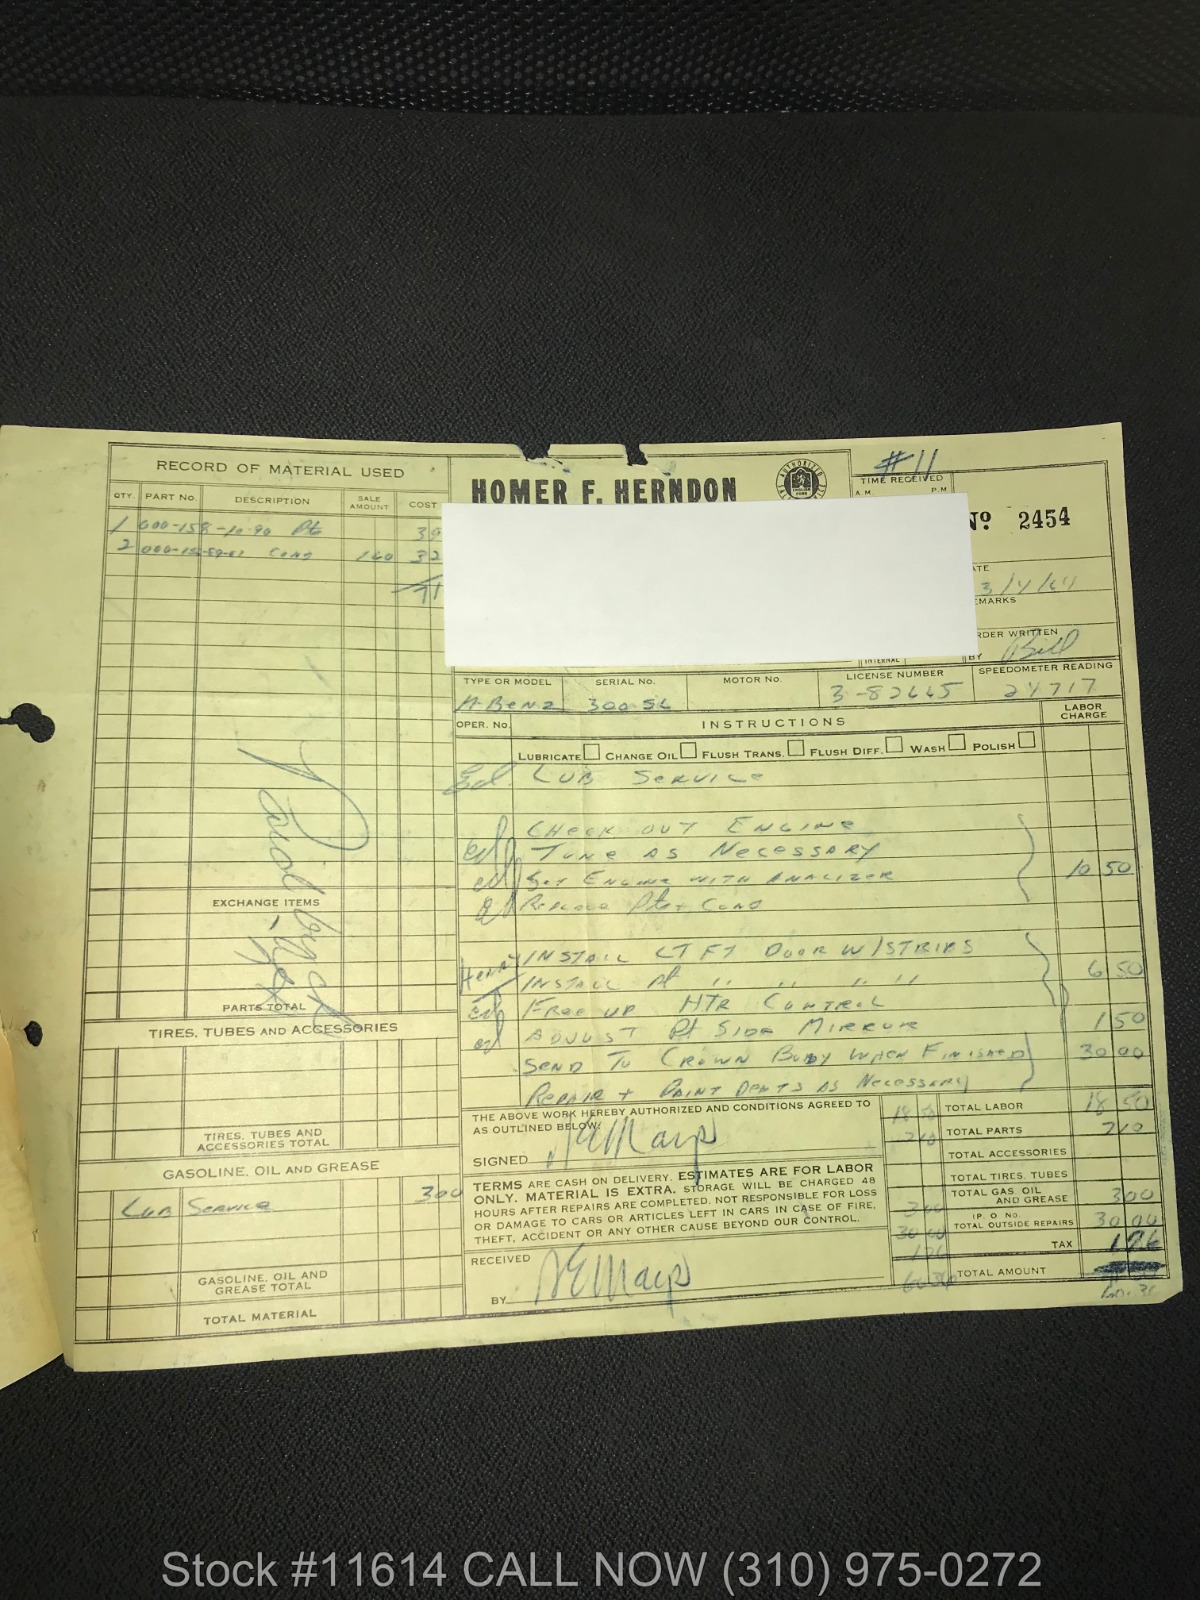 RECORD OF MATERIAL USED
QTY. PART No. DESCRIPTION SALE AMOUNT COST
1
2 160 32
71
EXCHANGE ITEMS
PARTS TOTAL
TIRES, TUBES AND ACCESSORIES
TIRES, TUBES AND ACCESSORIES TOTAL
GASOLINE, OIL AND GREASE
Lub Service 300
GASOLINE, OIL AND GREASE TOTAL
TOTAL MATERIAL
Paid by ck
HOMER F. HERNDON
AUTHORIZED
#11
TIME RECEIVED
A.M. P.M.
No 2454
3/4/64
BY Bill
INTERNAL
TYPE OR MODEL SERIAL No. MOTOR No. LICENSE NUMBER SPEEDOMETER READING
M-BENZ 300 SL 3-82665 24717
OPER. No. INSTRUCTIONS LABOR CHARGE
LUBRICATE CHANGE OIL FLUSH TRANS. FLUSH DIFF. WASH POLISH
Ed. LUB SERVICE
CHECK OUT ENGINE
ed TUNE AS NECESSARY
ed SET ENGINE WITH ANALIZER 10 50
REPLACE Pts + COND
Henry INSTALL LT FT DOOR W/STRIPS
INSTALL Rt " " " " 6 50
ed FREE UP HTR CONTROL
ed ADJUST Rt SIDE MIRROR 1 50
SEND TO CROWN BODY WHEN FINISHED 30 00
REPAIR + PAINT DENTS AS NECESSARY
THE ABOVE WORK HEREBY AUTHORIZED AND CONDITIONS AGREED TO
AS OUTLINED BELOW.
SIGNED
TERMS ARE CASH ON DELIVERY. ESTIMATES ARE FOR LABOR
ONLY. MATERIAL IS EXTRA. STORAGE WILL BE CHARGED 48
HOURS AFTER REPAIRS ARE COMPLETED. NOT RESPONSIBLE FOR LOSS
OR DAMAGE TO CARS OR ARTICLES LEFT IN CARS IN CASE OF FIRE,
THEFT, ACCIDENT OR ANY OTHER CAUSE BEYOND OUR CONTROL.
RECEIVED
BY
18 50 TOTAL LABOR 18 50
210 TOTAL PARTS 210
TOTAL ACCESSORIES
TOTAL TIRES, TUBES
300 TOTAL GAS, OIL AND GREASE 300
30 00 (P. O. NO. TOTAL OUTSIDE REPAIRS 30 00
TAX
TOTAL AMOUNT
Stock #11614 CALL NOW (310) 975-0272